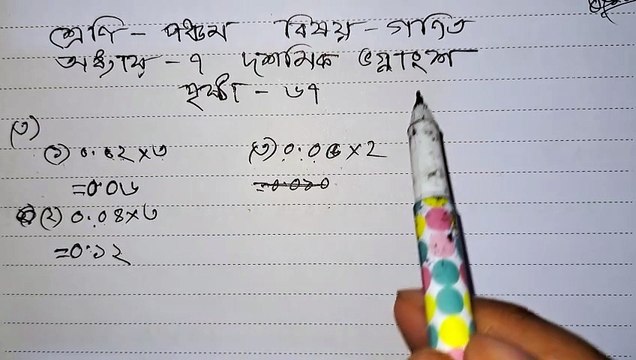 শ্রেণি - পঞ্চম বিষয় - গণিত
অধ্যায় - ৭ দশমিক ভগ্নাংশ
পৃষ্ঠা - ৬৭
(৩)
(১) ০.০২×৩
=০.০৬
(২) ০.০৪×৩
=০.১২
(৩) ০.০৫×২